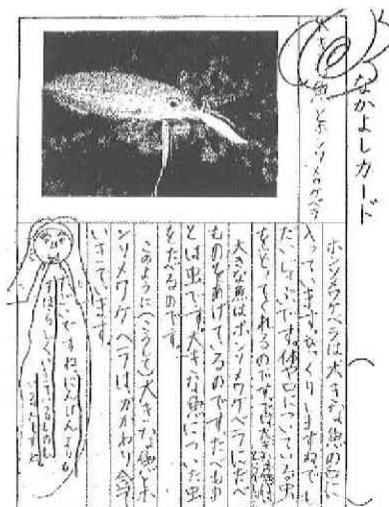 なかよしカード
大きな魚とホンソメワケベラ
ホンソメワケベラは大きな魚の口に
入っていきます。びっくりしますね。でも
だいじょうぶです。体や口についている虫
をとってくれるのです。
大きな魚はホンソメワケベラにたべ
ものをあげているのです。たべもの
とは虫です。大きな魚についた虫
をたべるのです。
このように(こうして)大きな魚とホ
ンソメワケベラはかかわり合って
いきています。
すごいですねにんげんよりも
すばらしく